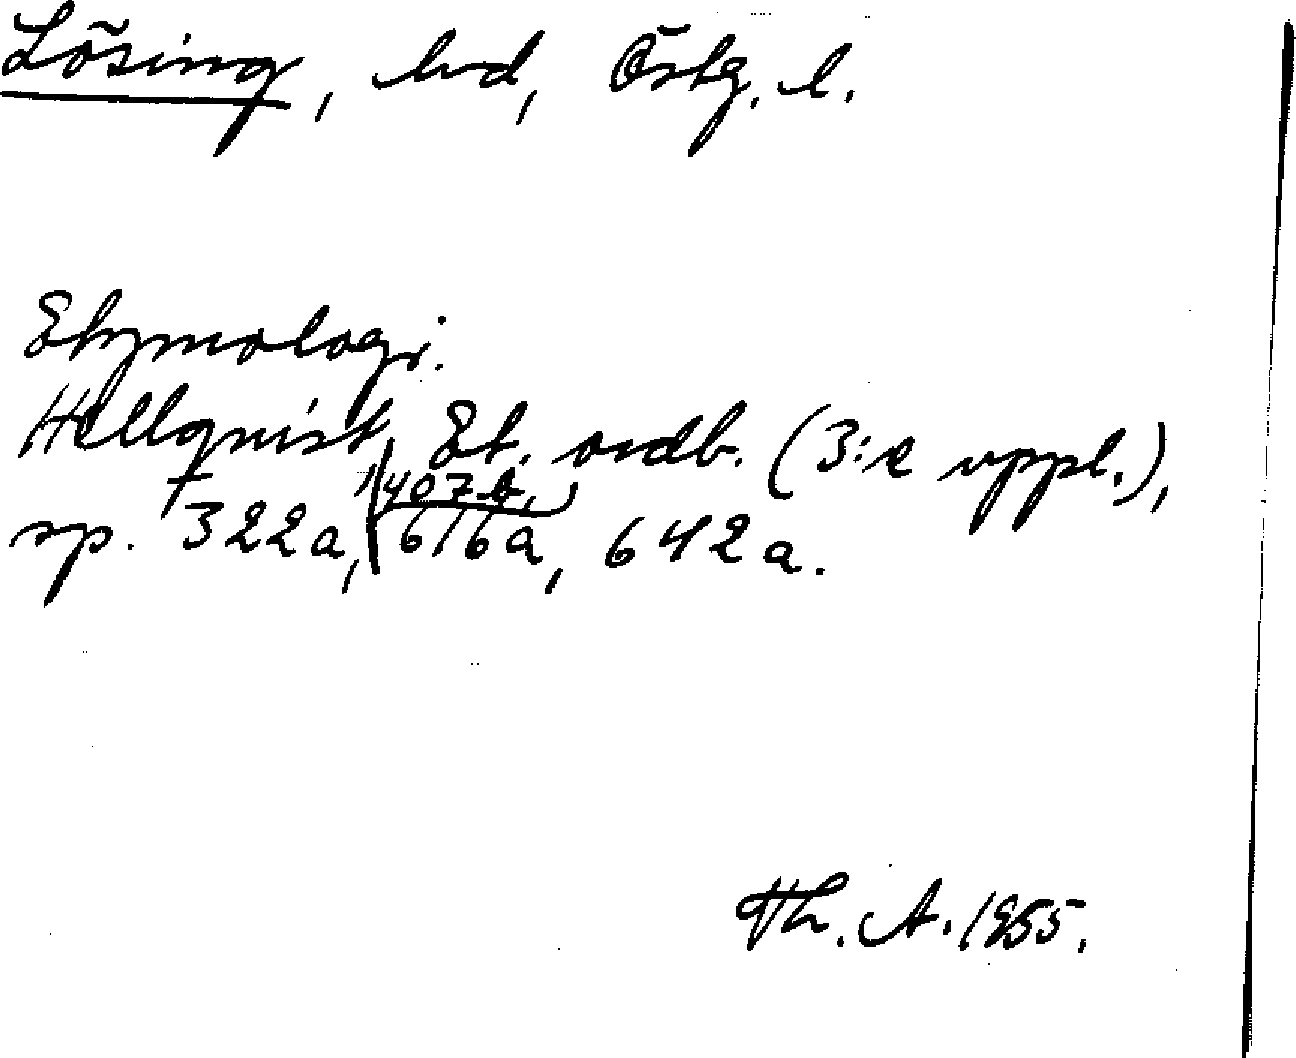 Lösing, hd, Östg. l.
Etymologi.
Hellquist, Et. ordb. (3:e uppl.),
sp. 322a, 407 b, 616a, 642a.
Th. A. 1955.